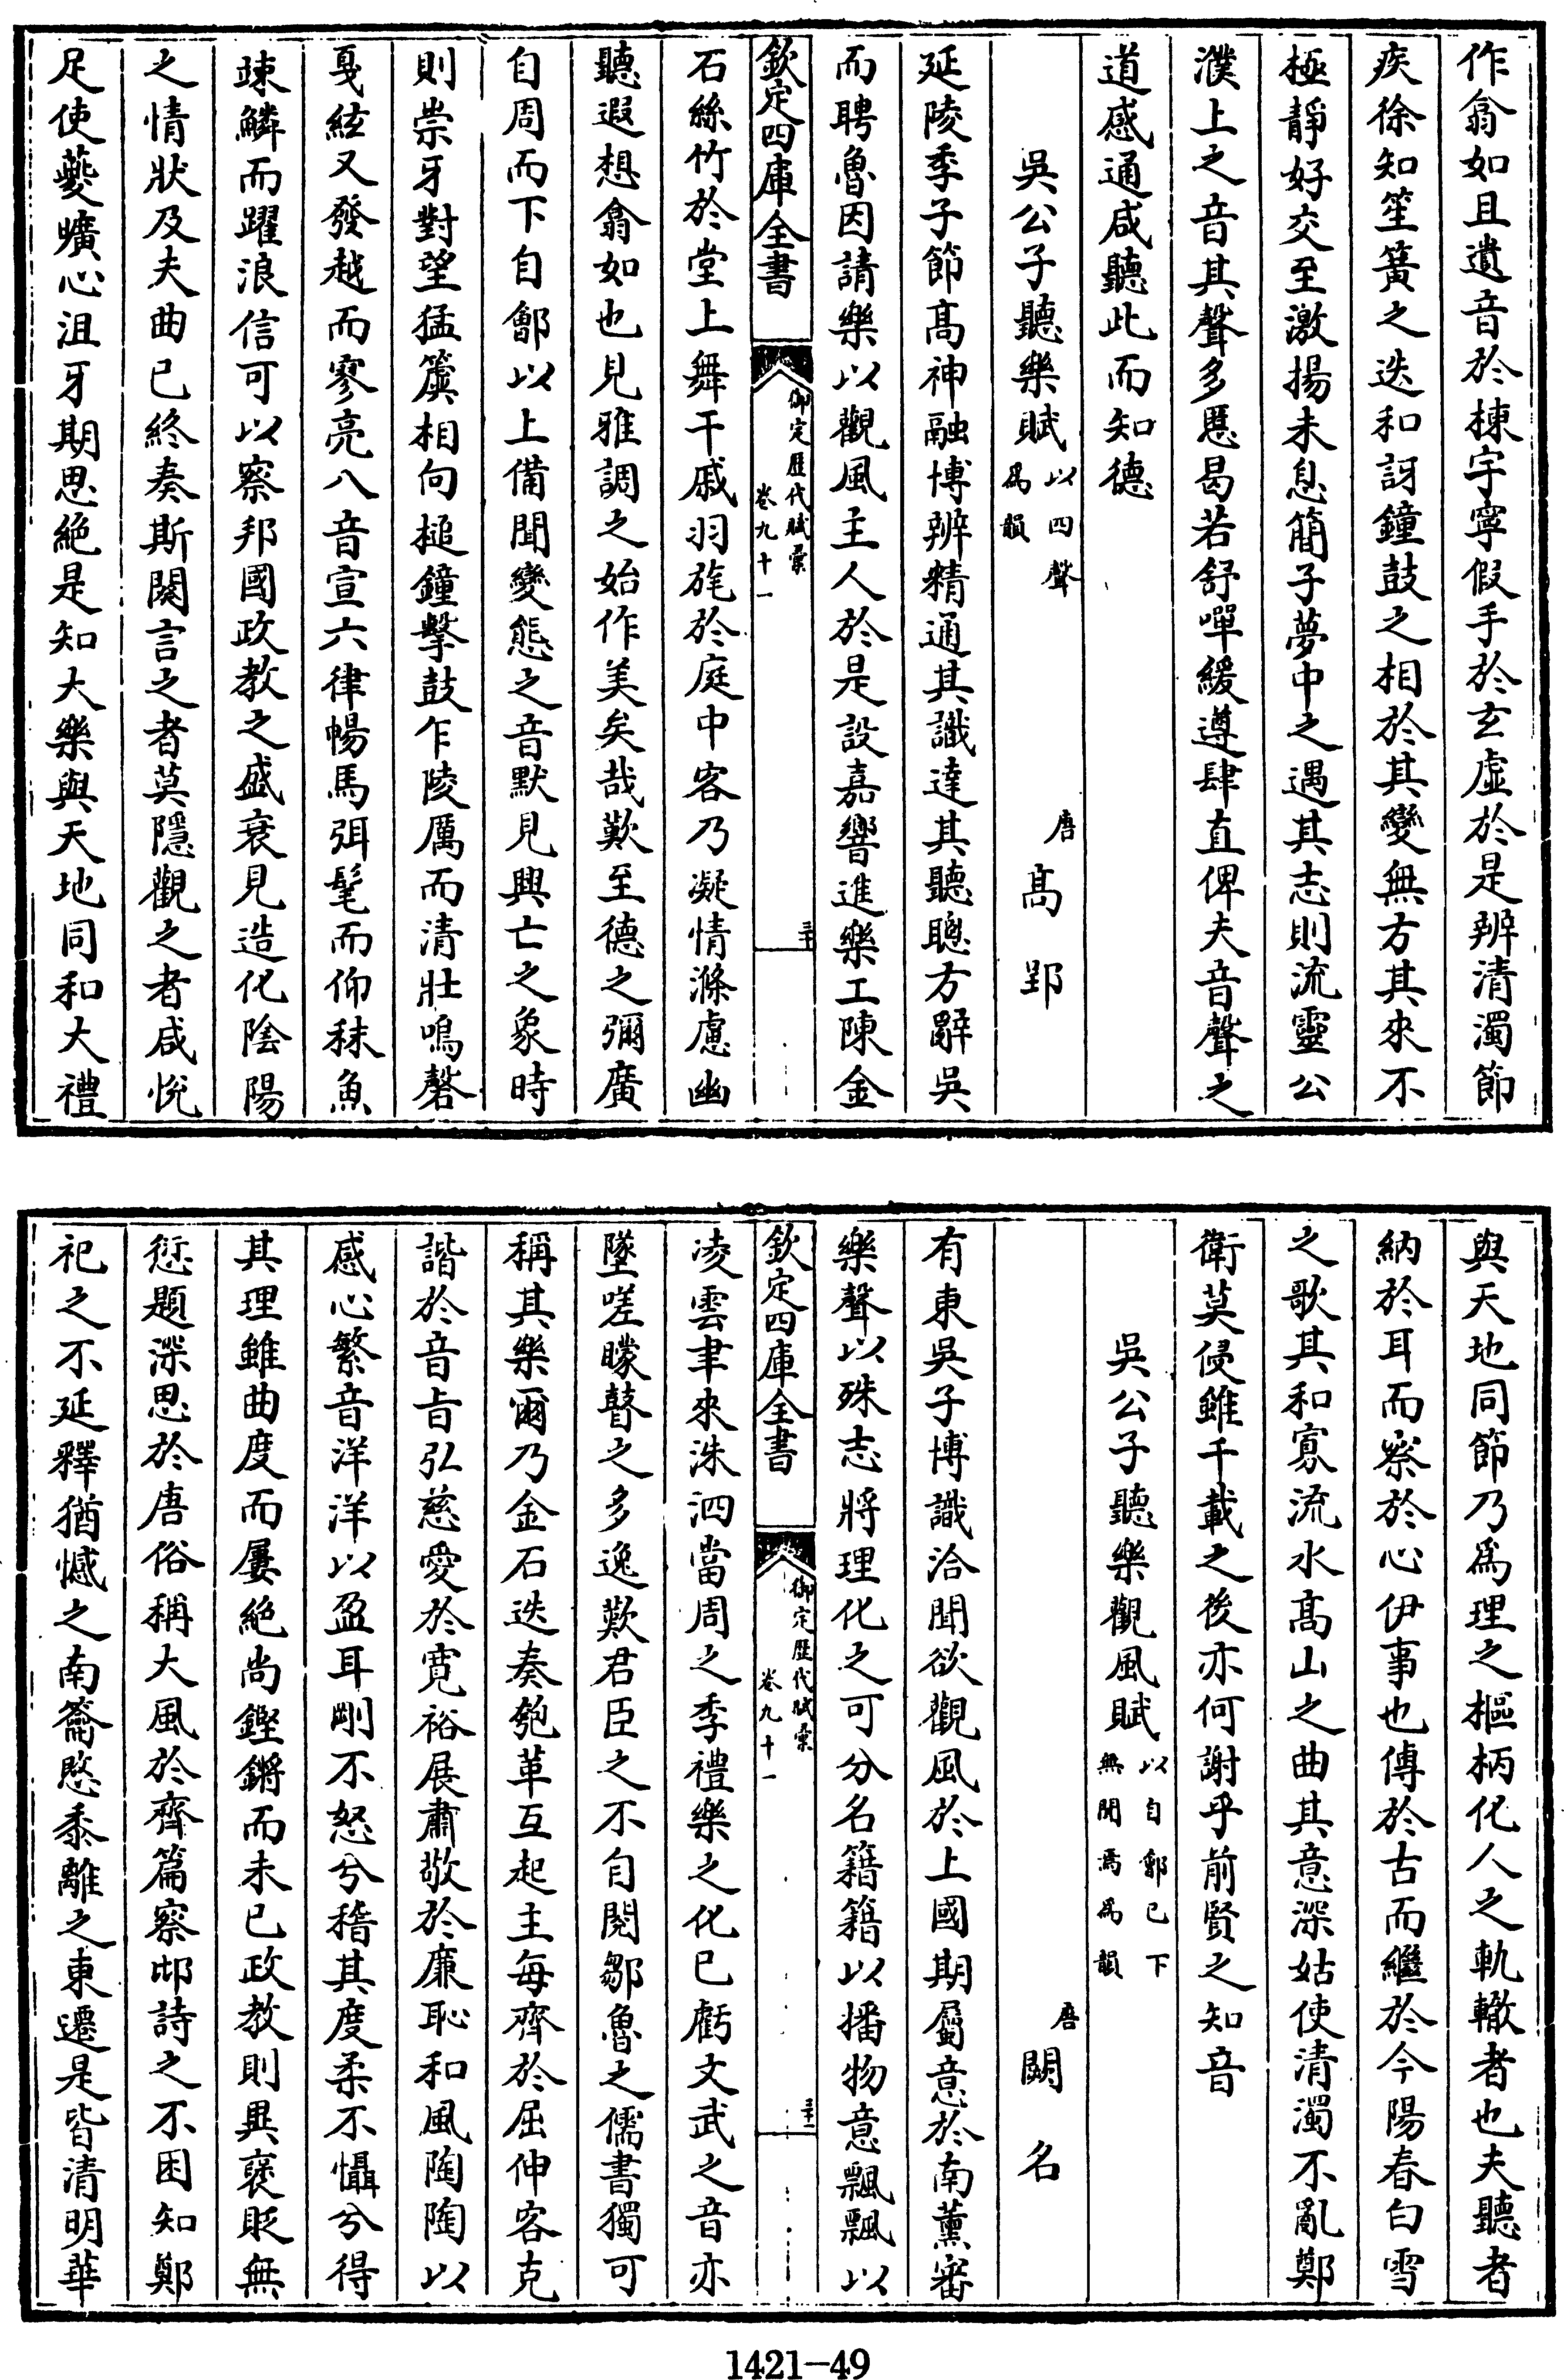 作翕如且遺音於棟宇寧假手於玄虛於是辨清濁節
疾徐知笙簧之迭和訝鐘鼓之相於其變無方其來不
極靜好交至激揚未息簡子夢中之遇其志則流靈公
濮上之音其聲多慝曷若舒嘽緩遵肆直俾夫音聲之
道感通咸聽此而知德
吳公子聽樂賦以四聲爲韻
唐 高郢
延陵季子節高神融博辨精通其識達其聽聰方辭吳
而聘魯因請樂以觀風主人於是設嘉響進樂工陳金
欽定四庫全書 御定歷代賦彙 卷九十一 三十
石絲竹於堂上舞干戚羽旄於庭中客乃凝情滌慮幽
聽遐想翕如也見雅調之始作美矣哉歎至德之彌廣
自周而下自鄶以上備聞變態之音默見興亡之象時
則崇牙對望猛簴相向槌鐘擊鼓乍陵厲而清壯鳴磬
戛絃又發越而寥亮八音宣六律暢馬弭髦而仰秣魚
竦鱗而躍浪信可以察邦國政教之盛衰見造化陰陽
之情狀及夫曲已終奏斯闋言之者莫隱觀之者咸悅
足使夔曠心沮牙期思絕是知大樂與天地同和大禮
與天地同節乃爲理之樞柄化人之軌轍者也夫聽者
納於耳而察於心伊事也傳於古而繼於今陽春白雪
之歌其和寡流水高山之曲其意深姑使清濁不亂鄭
衛莫侵雖千載之後亦何謝乎前賢之知音
吳公子聽樂觀風賦以自鄶已下無聞焉爲韻
唐 闕名
有東吳子博識洽聞欲觀風於上國期屬意於南薰審
樂聲以殊志將理化之可分名籍籍以播物意飄飄以
欽定四庫全書 御定歷代賦彙 卷九十一 三十一
凌雲聿來洙泗當周之季禮樂之化已虧文武之音亦
墜嗟矇瞽之多逸歎君臣之不自閱鄒魯之儒書獨可
稱其樂爾乃金石迭奏匏革互起主每齊於屈伸客克
諧於音旨弘慈愛於寬裕展肅敬於廉恥和風陶陶以
感心繁音洋洋以盈耳剛不怒兮稽其度柔不懾兮得
其理雖曲度而屢絕尚鏗鏘而未已政教則異褒貶無
愆題深思於唐俗稱大風於齊篇察邶詩之不困知鄭
祀之不延釋猶憾之南籥愍黍離之東遷是皆清明華
1421—49